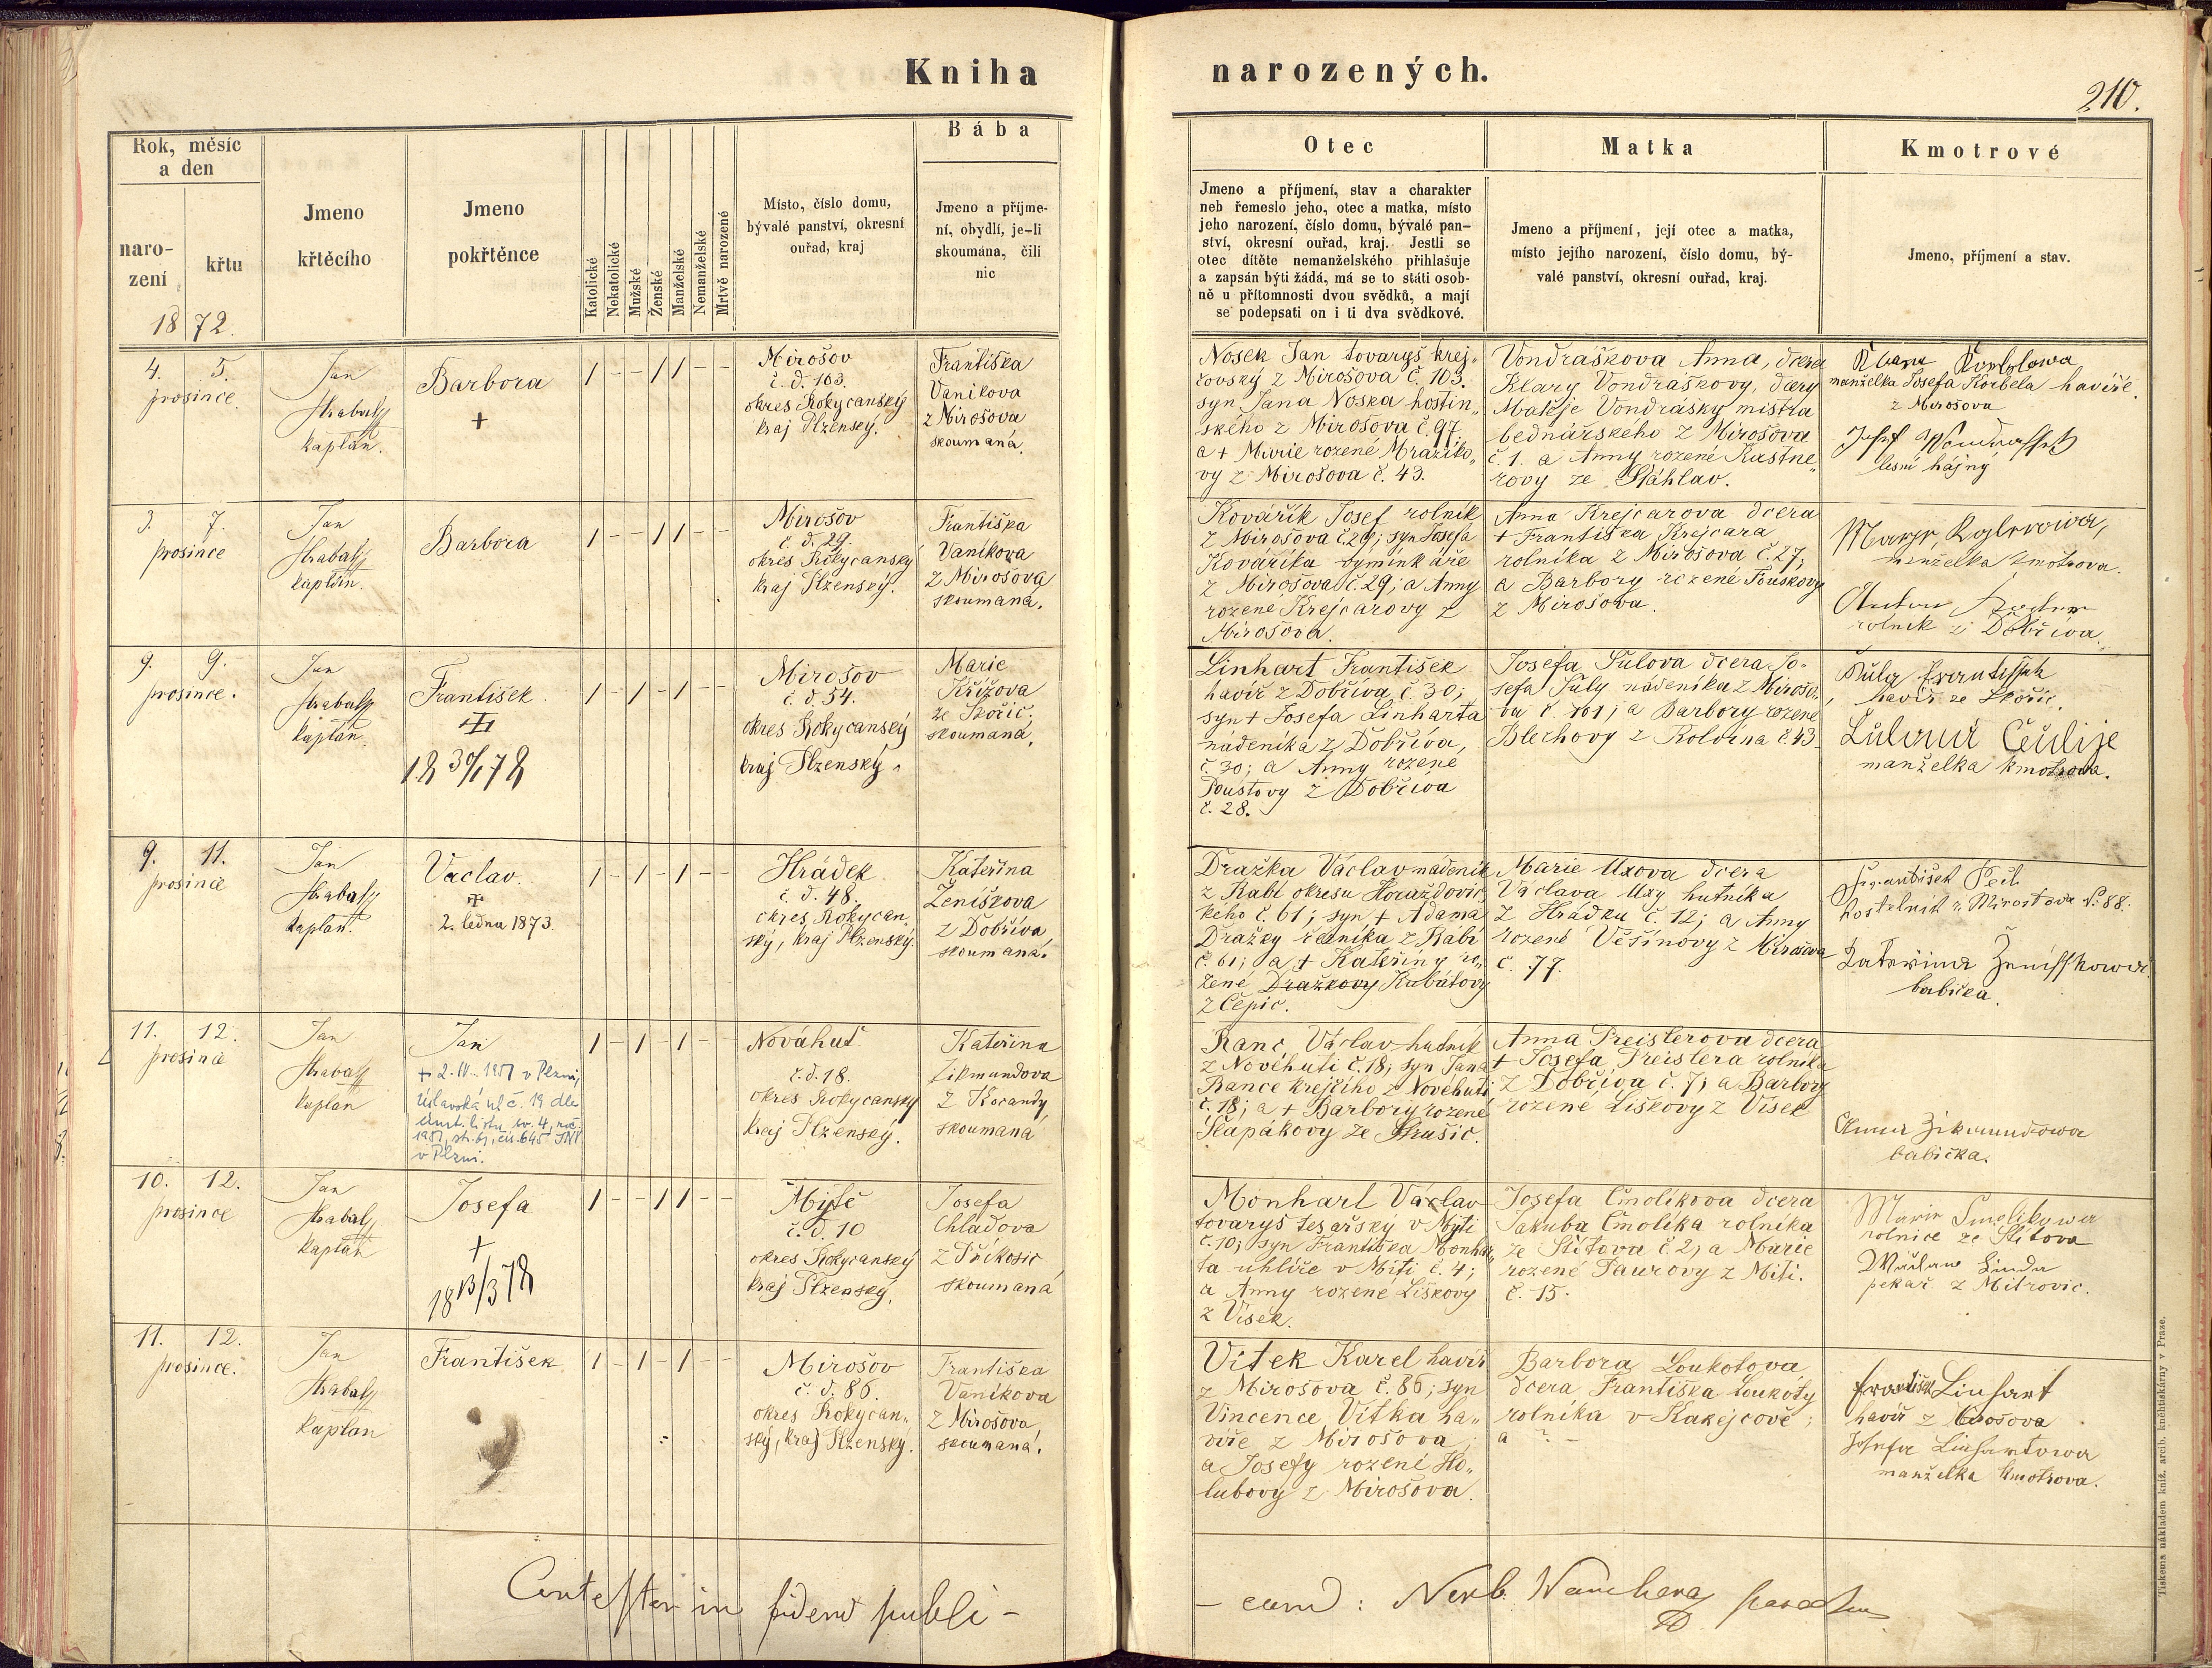 Kniha
narozených.
210.
Rok, měsíc
a den
naro-
zení
křtu
1872.
Jmeno
křtěcího
Jmeno
pokřtěnce
Katolické
Nekatolické
Mužské
Ženské
Manželské
Nemanželské
Mrtvě narozené
Místo, číslo domu,
bývalé panství, okresní
ouřad, kraj
Bába
Jmeno a příjme-
ní, obydlí, je-li
skoumána, čili
nic
Otec
Jmeno a příjmení, stav a charakter
neb řemeslo jeho, otec a matka, místo
jeho narození, číslo domu, bývalé pan-
ství, okresní ouřad, kraj. Jestli se
otec dítěte nemanželského přihlašuje
a zapsán býti žádá, má se to státi osob-
ně u přítomnosti dvou svědků, a mají
se podepsati on i ti dva svědkové.
Matka
Jmeno a příjmení, její otec a matka,
místo jejího narození, číslo domu, bý-
valé panství, okresní ouřad, kraj.
Kmotrové
Jmeno, příjmení a stav.
4. 5.
prosince.
Jan
Hrabal
kaplan.
Barbora
+
1 - - 1 1 - -
Mirošov
č. d. 103.
okres Rokycanský
kraj Plzenský.
Františka
Vaníkova
z Mirošova
skoumaná.
Nosek Jan tovaryš krej„
čovský z Mirošova č. 103.
syn Jana Noska hostin„
ského z Mirošova č. 97.
a + Marie rozené Mraziko„
vy z Mirošova č. 43.
Vondráškova Anna, dcera
Klary Vondráškovy, dcery
Matěje Vondrášky mistra
bednářského z Mirošova
č. 1. a Anny rozené Kastne„
rovy ze Štáhlav.
manželka Josefa Korbela havíře.
z Mirošova
lesní hájný
3. 7.
prosince
Jan
Hrabal
kaplan.
Barbora
1 - - 1 1 - -
Mirošov
č. d. 29.
okres Rokycanský
kraj Plzenský.
Františka
Vaníkova
z Mirošova
skoumaná.
Kovářík Josef rolník
z Mirošova č. 29; syn Josefa
Kováříka výminkáře
z Mirošova č. 29; a Anny
rozené Krejcarovy z
Mirošova.
Anna Krejcarova dcera
+ Františka Krejcara
rolníka z Mirošova č. 27;
a Barbory rozené Touškovy
z Mirošova.
manželka kmotrova.
Anton
rolník z Dobříva.
9. 9.
prosince.
Jan
Hrabal
kaplan.
František
18 30/1 78
1 - 1 - 1 - -
Mirošov
č. d. 54.
okres Rokycanský
kraj Plzenský.
Marie
Křížova
ze Skořic.
skoumaná.
Linhart František
havíř z Dobříva č. 30;
syn + Josefa Linharta
nádeníka z Dobříva,
č. 30; a Anny rozené
Poustovy z Dobříva
č. 28.
Josefa Šulova dcera Jo-
sefa Šuly nádeníka z Mirošo„
va č. 101; a Barbory rozené
Blechovy z Kolvína č. 43
Šula Frantissek
havíř ze Skořic,
manželka kmotrova.
9. 11.
prosince
Jan
Hrabal
kaplan.
Vaclav.
2. ledna 1873.
1 - 1 - 1 - -
Hrádek
č. d. 48.
okres Rokycan„
ský, kraj Plzenský.
Kateřina
Ženíškova
z Dobříva
skoumaná.
Dražka Václav nádeník
z Rabí okresu Horažďovic„
kého č. 61; syn + Adama
Dražky čeníka z Rabí
č. 61; a + Kateřiny ro„
zené Dražkovy Kabátovy
z Čepic.
Marie Uxova dcera
Václava Uxy hutníka
z Hrádku č. 12; a Anny
rozené Věšínovy z Mirošova
č. 77.
František Peck
Katerina Ženisskowa
babička.
11. 12.
prosince
Jan
Hrabal
kaplan
Jan
+ 2. IV. 1951 v Plzni,
Úslavská ul. č. 19 dle
úmrt. listu sv. 4, roč.
1951, str. 61, čís. 645 JNV
v Plzni.
1 - 1 - 1 - -
Nováhuť
č. d. 18.
okres Rokycanský
kraj Plzenský.
Kateřina
Zikmundova
z Kocandy
skoumaná
Ranc Václav hutník
z Novéhuti č. 18; syn Jana
Rance krejčího z Novéhuti
č. 18; a + Barbory rozené
Slapákovy ze Strašic.
Anna Preislerova dcera
+ Josefa Preislera rolníka
z Dobříva č. 7; a Barbory
rozené Liškovy z Vísek
Anna Zikmundowa
babička.
10. 12.
prosince
Jan
Hrabal
kaplan
Josefa
+
18 13/3 78
1 - - 1 1 - -
Mýtě
č. d. 10
okres Rokycanský
kraj Plzenský.
Josefa
Chladova
z Příkosic
skoumaná
Monhart Václav
tovaryš tesařský v Mýti
č. 10; syn Františka Monhar„
ta uhlíře v Míti č. 4;
a Anny rozené Liškovy
z Vísek.
Josefa Čmolíkova dcera
Jakuba Čmolíka rolníka
ze Štítova č. 2, a Marie
rozené Saurovy z Míti.
č. 15.
Marie Smolikowa
rolnice ze Štítova
Wáclaw Linda
pekař z Mitrovic.
11. 12.
prosince.
Jan
Hrabal
kaplan
František
1 - 1 - 1 - -
Mirošov
č. d. 86.
okres Rokycan„
ský, kraj Plzenský.
Františka
Vaníkova
z Mirošova,
skoumaná.
Vítek Karel havíř
z Mirošova č. 86; syn
Vincence Vítka ha„
víře z Mirošova;
a Josefy rozené Ho„
lubovy z Mirošova.
Barbora Loukotova
dcera Františka Loukoty
rolníka v Kakejcově;
a ? -
František Linhart
havíř z Mirošova
Josefa Linhartowa
manželka kmotrova.
Contestor in fidem publi-
- cam:
Tiskem a nákladem kníž. arcib. knihtiskárny v Praze.